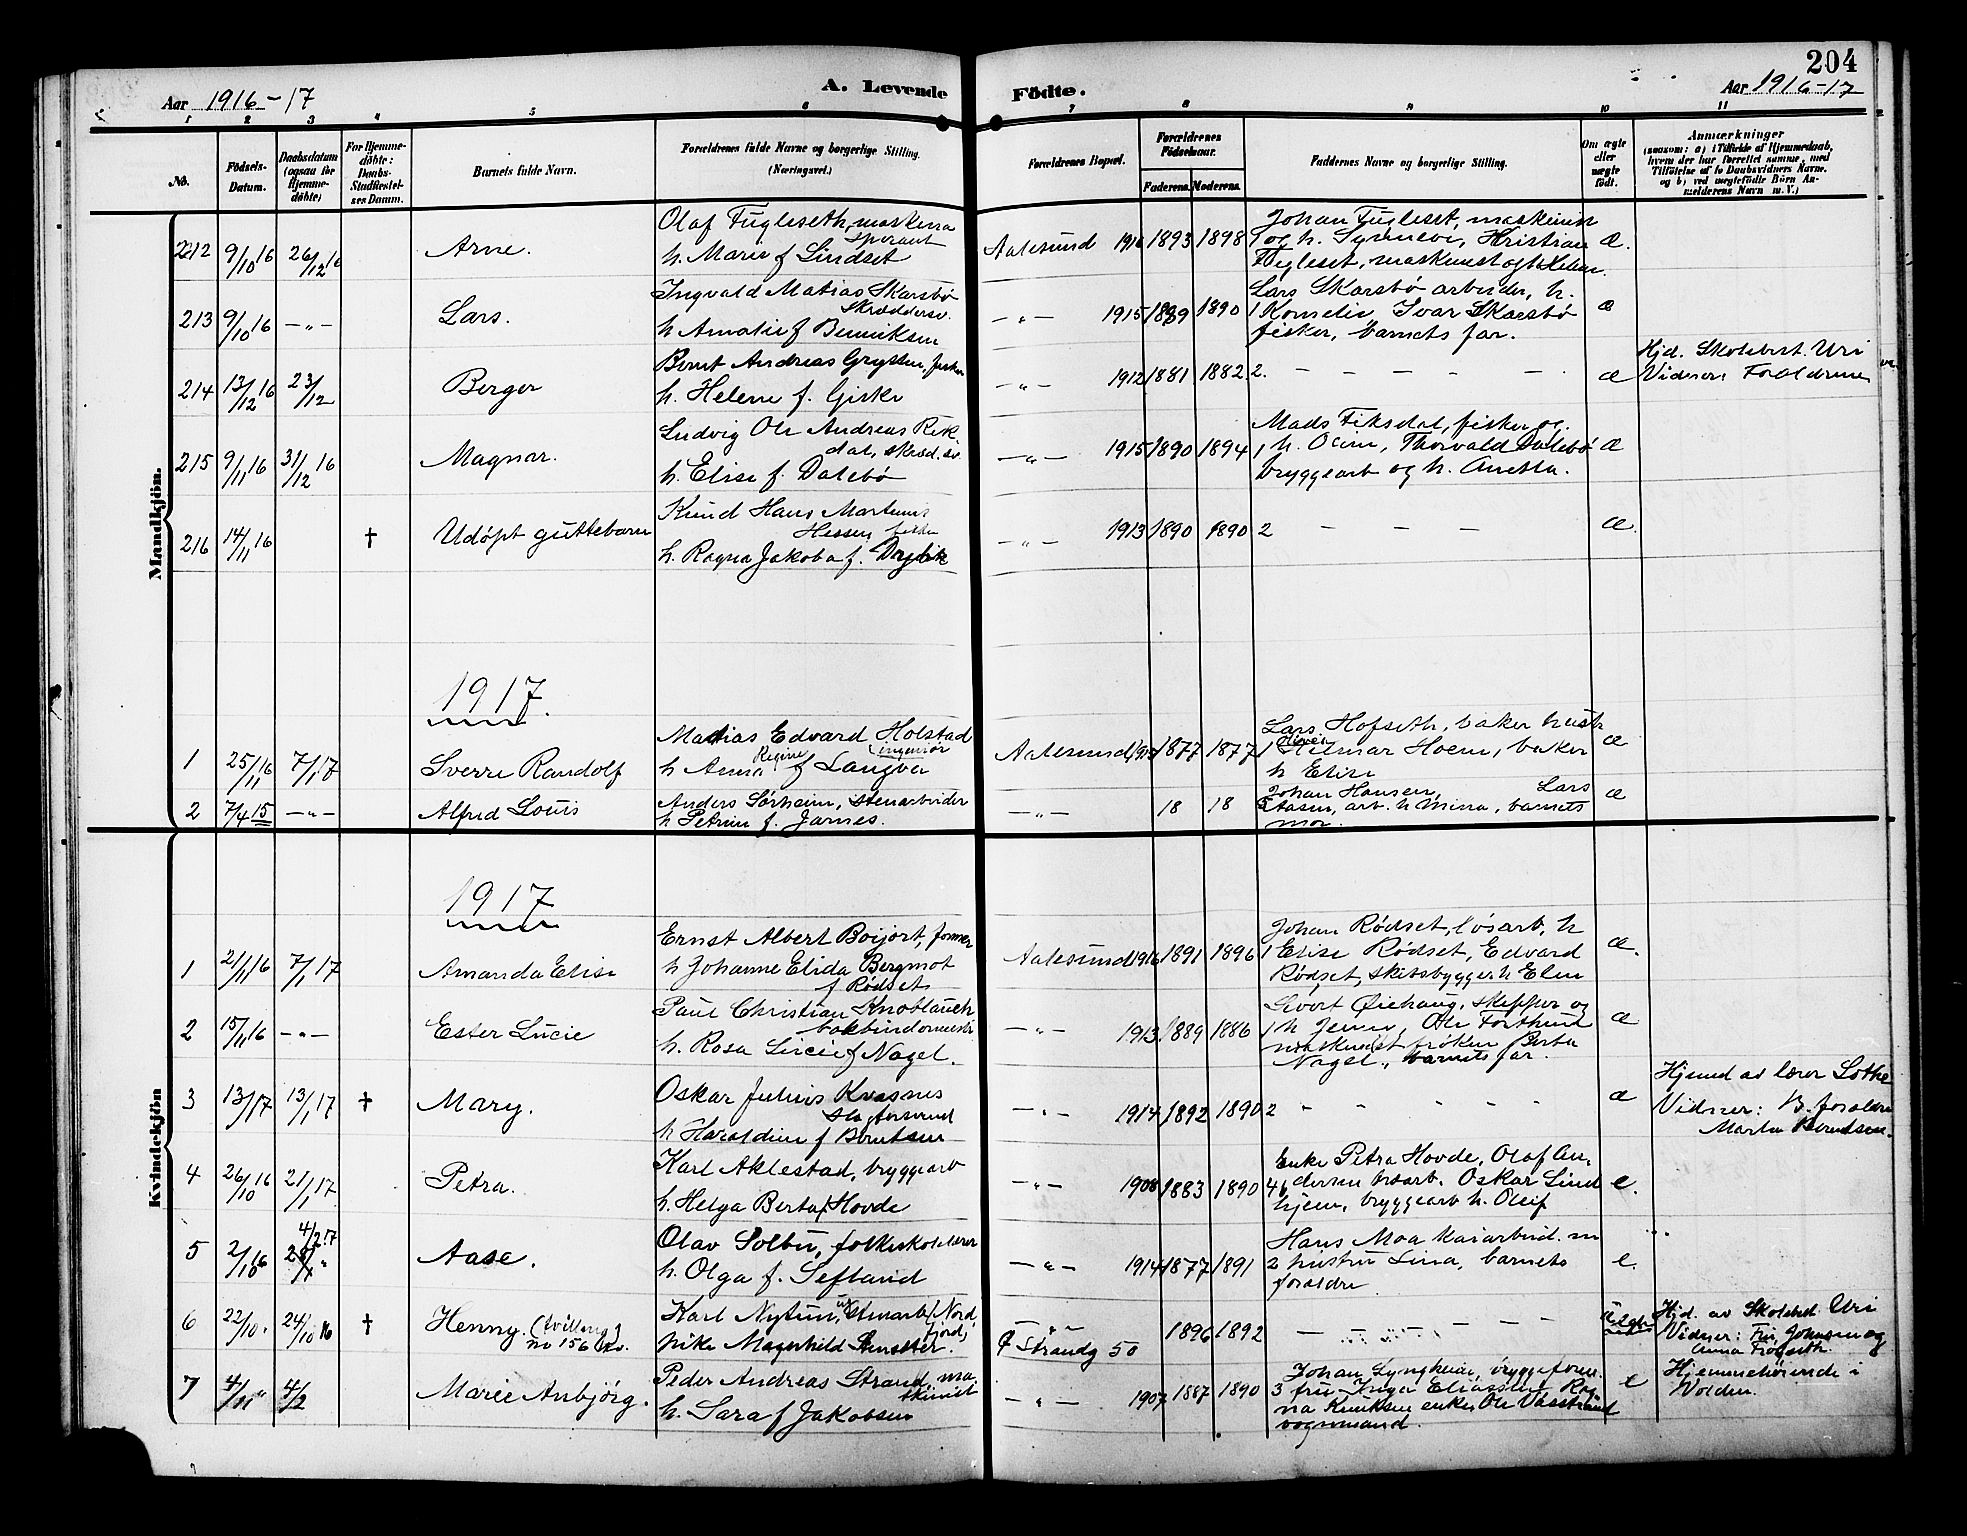 204
Aar 1916-17
A. Levende
Födte.
Aar 1916-17
1 2 3 4 5 6 7 8 9 10 11
No.
Födsels-Datum.
Daabsdatum (ogsaa for Hjemmedöbte)
For Hjemmedöbte: Daabs-Stadfæstelses Datum.
Barnets fulde Navn.
Forældrenes fulde Navne og borgerlige Stilling. (Næringsvei.)
Forældrenes Bopæl.
Forældrenes Födselsaar.
Faderens. Moderens.
Faddernes Navne og borgerlige Stilling.
Om ægte eller uægte födt.
Anmærkninger
(saasom: a) i Tilfælde af Hjemmedaab, hvem der har forrettet samme, med Tilföielse af to Daabsvidners Navne, og b) ved uægtefödte Börn Anmelderens Navn m. V.)
Mandkjön.
212 9/10 16 26/12 16 Arne.
Olaf Fugleseth, maskinaspirant
h. Marie f Lindset
Aalesund 1916 1893 1898
Johan Fugleset, maskinist
1 og h. Synneve, Kristian
Fugleset, maskinist og h Helene.
Æ.
213 9/10 16 -"- Lars.
Ingvald Matias Skarsbö
Skræddersv.
h Amalie f Benniksen
-"- 1915 1889 1890
Lars Skarsbö arbeider, h.
1 Kornelie, Ivar Skarsbö
fisker, barnets far.
Æ
214 13/12 16 23/12 Berger
Bernt Andreas Grytten, fisker
h. Helene f. Giske
-"- 1912 1881 1882 2. - - - - -
Æ
Hjd. Skolebest. Uri
Vidner: Forældrene
215 9/11 16 31/12 16 Magnar.
Ludvig Ole Andreas Rekdal, skræd. sv.
h. Elise f. Dalebø
-"- 1915 1890 1894
Mads Fiksdal, fisker og
1 h. Oline, Thorvald Dalebø
bryggearb og h. Anetta.
Æ
216 14/11 16 † Udøpt guttebarn
Knud Hans Martinus
Hessen fisker
h. Ragna Jakoba f. Dryblik
-"- 1913 1890 1890 2 - - -
Æ.
1917.
1 25/11 16 7/1 17 Sverre Randolf
Matias Edvard Holstad
ingeniør
h Anna Regine f Langva
Aalesund 1915 1877 1877
Lars Hofseth, baker hustr
1 Olivie Hilmar Hoem, baker
h Elise
Æ
2 7/4 15 -"- Alfred Louis
Anders Sørheim, stenarbeider
h Petrine f. Jarnes.
-"- 18 18
Johan Hansen, Lars
Aasen, arb. h Minna, barnets
mor.
Æ
Kvindekjön
1917
1 21/11 16 7/1 17 Amanda Elise
Ernst Albert Boijort, former
h Johanne Elida Bergmot
f Rødset
Aalesund 1916 1891 1896
Johan Rødset, løsarb, h
1 Elise Rødset, Edvard
Rødset, skibsbygger h Elen
Æ.
2 15/11 16 -"- Ester Lucie
Paul Christian Knoblauch
bokbindermester
h. Rosa Lucie f Nagel.
-"- 1913 1889 1886
Sivert Øiehaug, skipper og
1 h Jenny, Ole Forthun
maskinist frøken Berta
Nagel, barnets far.
Æ
3 13/1 17 13/1 17 † Mary.
Oskar Julius Kvasnes
h Haraldine f Berntsen
-"- 1914 1892 1890 2 " " " "
Æ
Hjemmed av lærer Sothe
Vidner: B. forældre
Marta Berntsen.
4 26/10 16 21/1 17 Petra.
Karl Aklestad, bryggearb
h. Helga Berta f Hovde
-"- 1908 1883 1890
Enke Petra Hovde, Olaf An
4 dersen, Oskar Lind
hjem, bryggearb h. Oleif
e.
5 2/10 16 4/2 17 Aase.
Olav Solbu, folkeskolelærer
h. Olga f. Sefland
-"- 1914 1877 1891
Hans Moa kaiarbeid. m
2 hustru Lina, barnets
forældre
e.
6 22/10 " 24/10 16 † Henny. (tvilling)
no 156
Karl Nytun, stenarb (Nord
fjord,
pike Magnhild Senseter.
-"-
Ø Strandg 50
1896 1892
Uegte
Hjd. av Skolebest Uri
Vidner: Fru Johnsen og
Anna Frøseth.
7 4/11 " 4/2 Marie Anbjörg.
Peder Andreas Strand, ma
skinist
h. Sara f Jakobsen
-"- 1907 1887 1890
Johan Lyngheim, bryggeform.
3 fru Inga Eliassen Rag
na Knutsen enke, Ole Vasstrand
vognmand.
e
Hjemmehørende i
Volden.